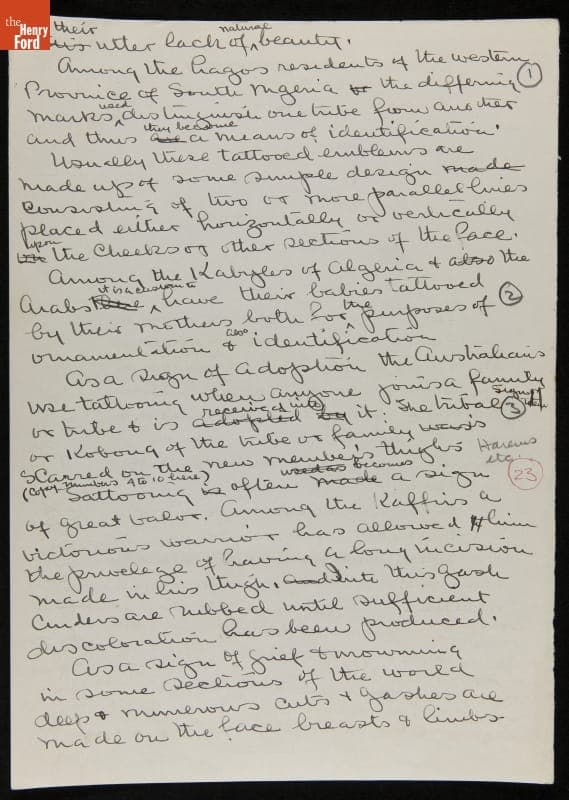 the
Henry
Ford
their natural
his utter lack of beauty.
Among the Lagos residents of the western
Province of South Nigeria or the differing ①
marks used distinguish one tribe from another
and thus they become are a means of identification.
Usually these tattooed emblems are
made up of some simple design made
consisting of two or more parallel lines
placed either horizontally or vertically
upon the cheeks or other sections of the face.
Among the Kabyles of Algeria & also the
Arabs it is a custom to have their babies tattooed
by their mothers both for the purposes of ②
ornamentation & also identification
As a sign of adoption the Australians
use tattooing when anyone joins a family
or tribe & is adopted by received into it. The tribal sign ③
or Kobong of the tribe or family is
scarred on the new members thighs Harems etc.
(Copy numbers 4 to 10 here) 23
Tattooing is used as becomes often made a sign
of great valor. Among the Kaffirs a
victorious warrior has allowed him
the privelege of having a long incision
made in his thigh, and into this gash
cinders are rubbed until sufficient
discoloration has been produced.
As a sign of grief & mourning
in some sections of the world
deep & numerous cuts & gashes are
made on the face breasts & limbs